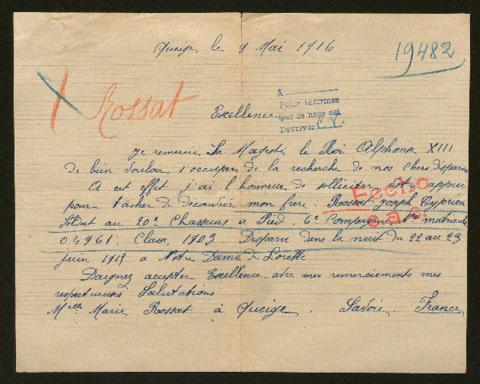 Queige le 9 Mai 1916
19482
Rossat
A
Pedir informes
Que se haga así
Devolver C.V.
Excellence
Je remercie Sa Majesté le Roi Alphonse XIII
de bien vouloir s'occuper de la recherche de nos chers disparus
A cet effet j'ai l'honneur de solliciter appui
pour tâcher de découvrir mon frère. Rossat Joseph Cyprien
Fecho
Soldat au 20e Chasseurs à Pied. 6e Compagnie matricule
04961. Class. 1903 Disparu dans la nuit du 22 au 23
juin 1915 a Notre Dame de Lorette
Daignez accepter Excellence avec mes remerciements mes
respectueuses Salutations
Melle Marie Rossat à Queige. Savoie. France